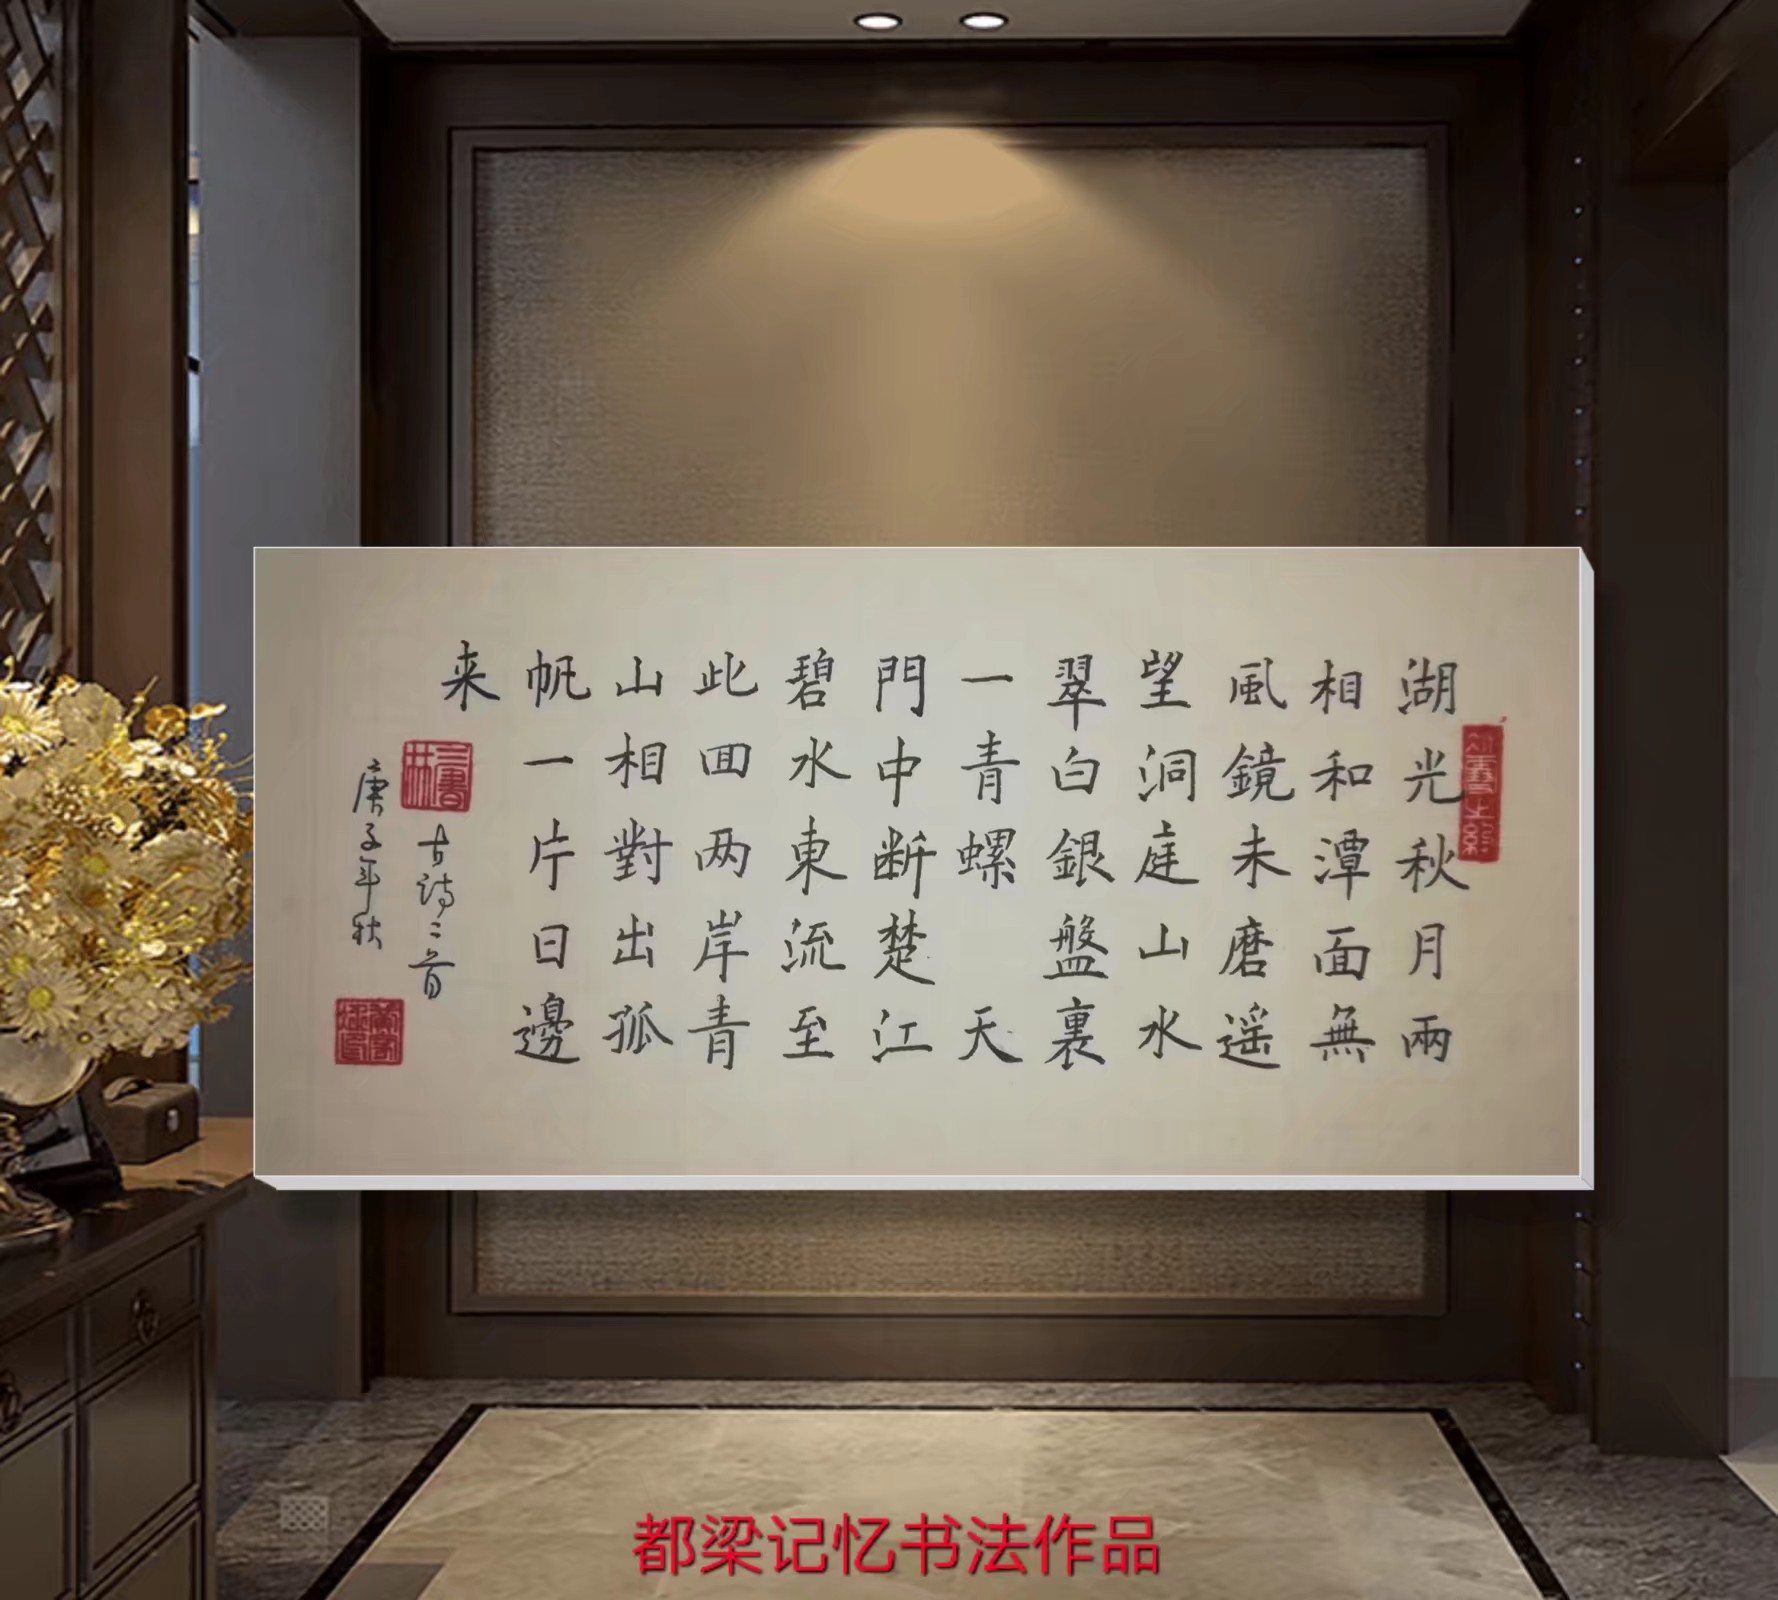 湖光秋月兩
相和潭面無
風鏡未磨遥
望洞庭山水
翠白銀盤裏
一青螺 天
門中断楚江
碧水東流至
此囬两岸青
山相對出孤
帆一片日邊
来
古诗二首
庚子年秋
都梁记忆书法作品